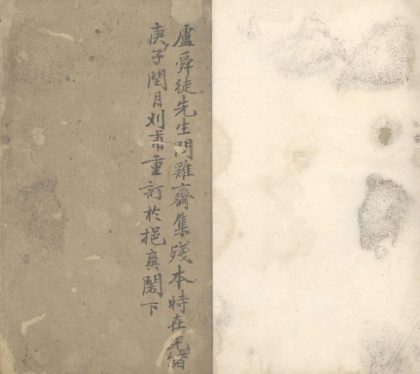 盧舜徒先生問難齋集殘本時在光緒
庚子閏月刈帚重訂於挹爽閣下